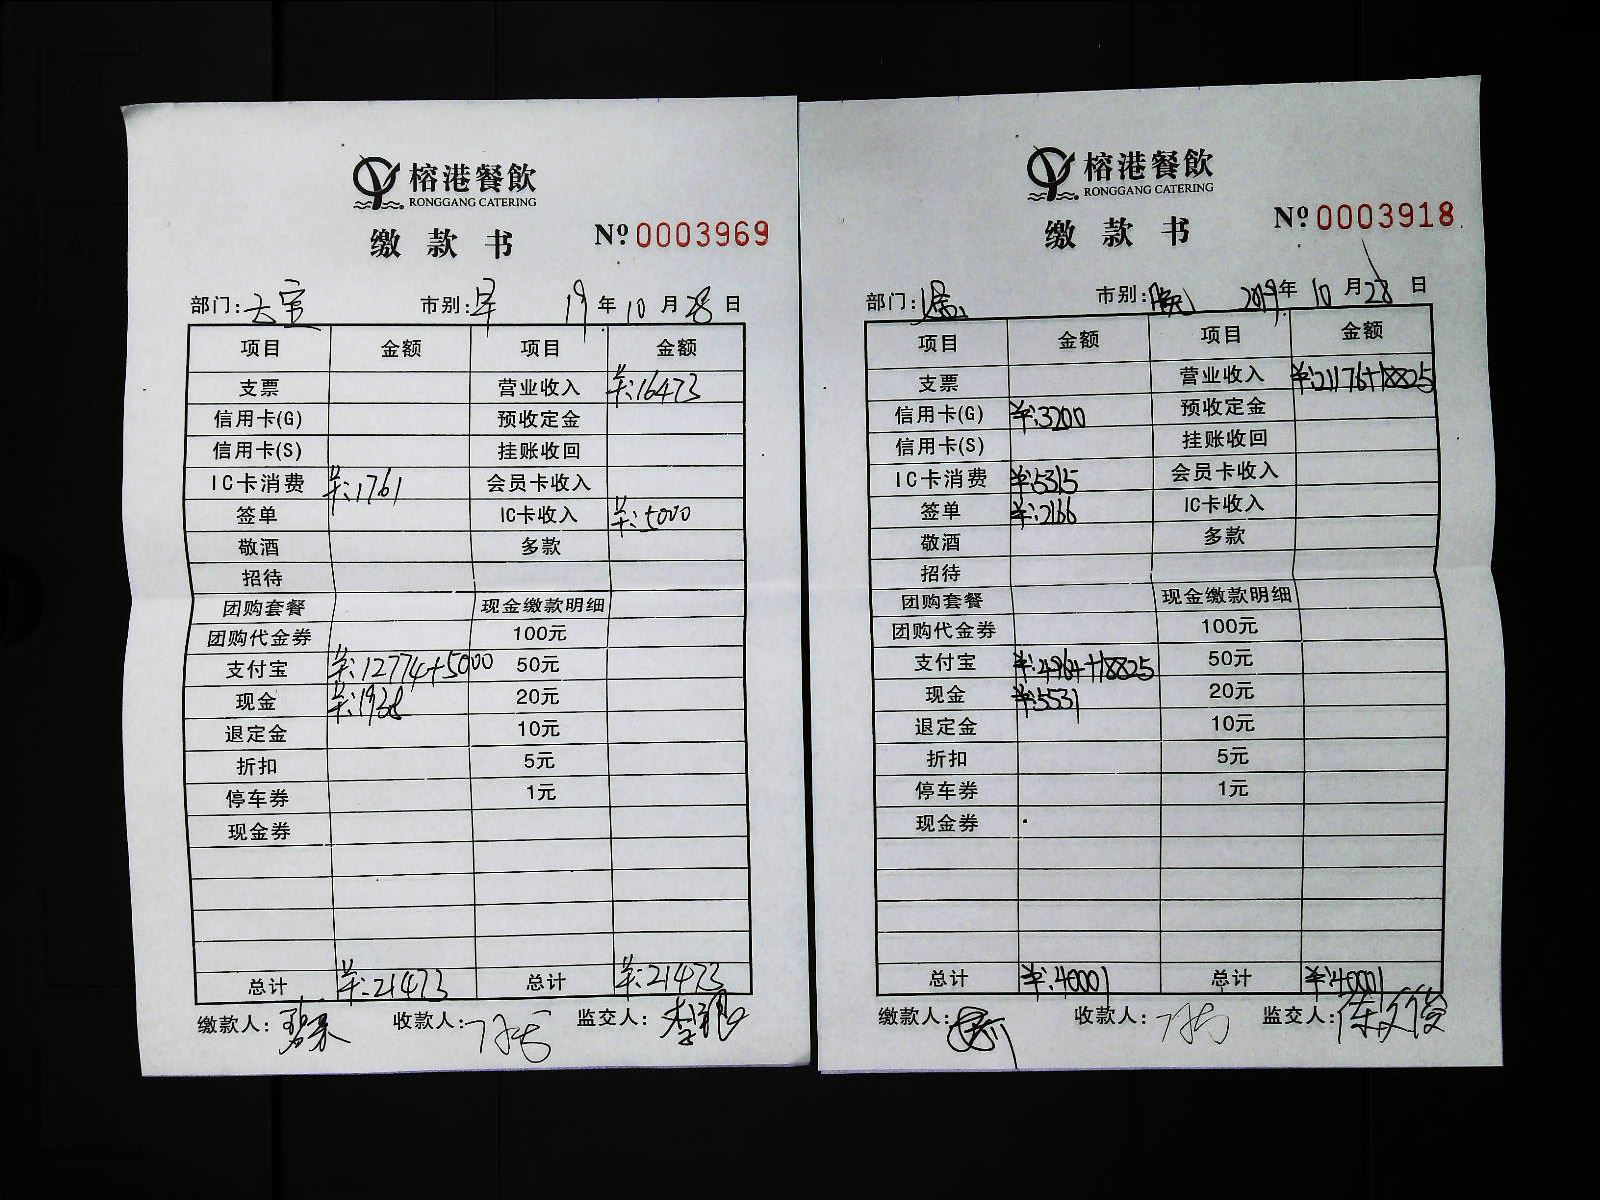 榕港餐飲
RONGGANG CATERING
缴款书
Nº 0003969
部门: 大堂 市别: 早 19 年 10 月 28 日
项目 金额 项目 金额
支票 营业收入 ¥:16473
信用卡(G) 预收定金
信用卡(S) 挂账收回
IC卡消费 ¥:1761 会员卡收入
签单 IC卡收入 ¥:5000
敬酒 多款
招待
团购套餐 现金缴款明细
团购代金券 100元
支付宝 ¥:12774+5000 50元
现金 ¥:1938 20元
退定金 10元
折扣 5元
停车券 1元
现金券
总计 ¥:21473 总计 ¥:21473
缴款人: 收款人: 监交人:
榕港餐飲
RONGGANG CATERING
缴款书
Nº 0003918
部门: 市别: 晚 2019年 10 月 28 日
项目 金额 项目 金额
支票 营业收入 ¥:21176+18825
信用卡(G) ¥:3200 预收定金
信用卡(S) 挂账收回
IC卡消费 ¥:5315 会员卡收入
签单 ¥:2166 IC卡收入
敬酒 多款
招待
团购套餐 现金缴款明细
团购代金券 100元
支付宝 ¥:4964+18825 50元
现金 ¥:5531 20元
退定金 10元
折扣 5元
停车券 1元
现金券
总计 ¥:40001 总计 ¥:40001
缴款人: 收款人: 监交人: 陈文俊